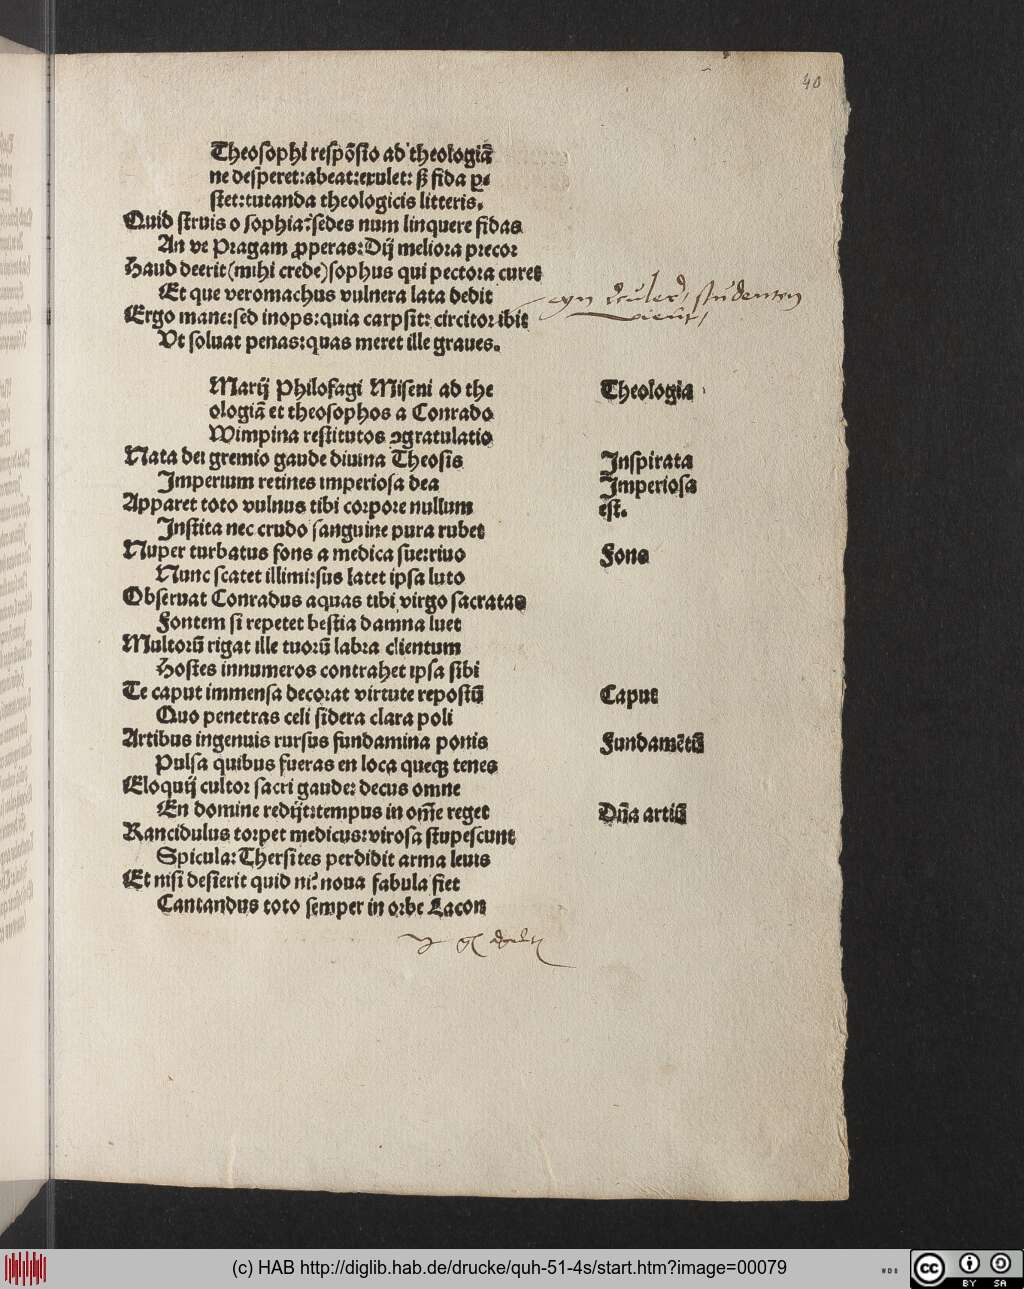 40
Theosophi respōsio ad theologiā
ne desperet:abeat:exulet: sꝫ fida ꝑ⸗
stet:tutanda theologicis litteris.
Quid struis o sophia?sedes num linquere fidas
An ve Pragam ꝓperas:Dij meliora precor
Haud deerit(mihi crede)sophus qui pectora curet
Et que veromachus vulnera lata dedit
Ergo mane:sed inops:quia carpsit: circitor ibit
Vt soluat penas:quas meret ille graues.
Marij Philofagi Miseni ad the
ologiā et theosophos a Conrado
Wimpina restitutos ꝯgratulatio
Theologia
Nata dei gremio gaude diuina Theosis
Inspirata
Imperium retines imperiosa dea
Imperiosa
Apparet toto vulnus tibi corpore nullum
est.
Instita nec crudo sanguine pura rubet
Nuper turbatus fons a medica sue:riuo
Fons
Nunc scatet illimi:sus latet ipsa luto
Obseruat Conradus aquas tibi virgo sacratas
Fontem si repetet bestia damna luet
Multorū rigat ille tuorū labra clientum
Hostes innumeros contrahet ipsa sibi
Te caput immensa decorat virtute repostū
Caput
Quo penetras celi sidera clara poli
Artibus ingenuis rursus fundamina ponis
Fundamētū
Pulsa quibus fueras en loca queqꝫ tenes
Eloquij cultor sacri gaude: decus omne
En domine redijt:tempus in om̄e reget
Dn̄a artiū
Rancidulus torpet medicus:virosa stupescunt
Spicula:Thersites perdidit arma leuis
Et nisi desierit quid ni? noua fabula fiet
Cantandus toto semper in orbe Lacon
(c) HAB http://diglib.hab.de/drucke/quh-51-4s/start.htm?image=00079
cc
BY SA